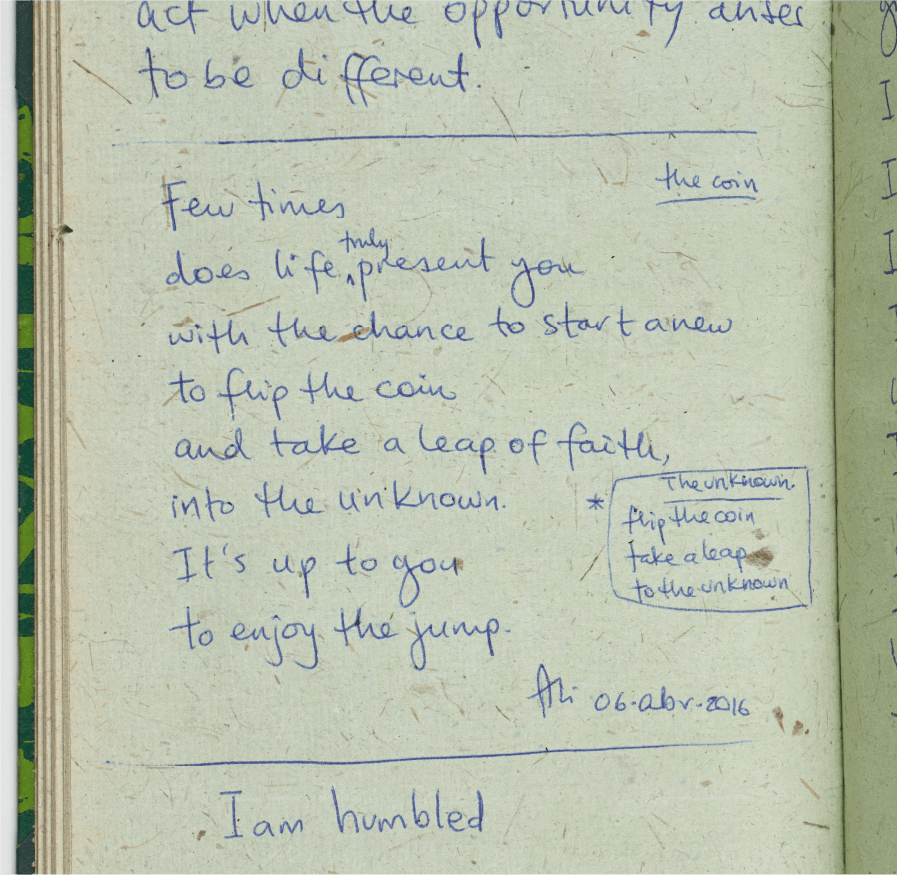 act when the opportunity arises
to be different.
the coin
Few times
does life truly present you
with the chance to start anew
to flip the coin
and take a leap of faith,
into the unknown.
* The unknown.
flip the coin
take a leap
to the unknown
It's up to you
to enjoy the jump.
06-abr-2016
I am humbled